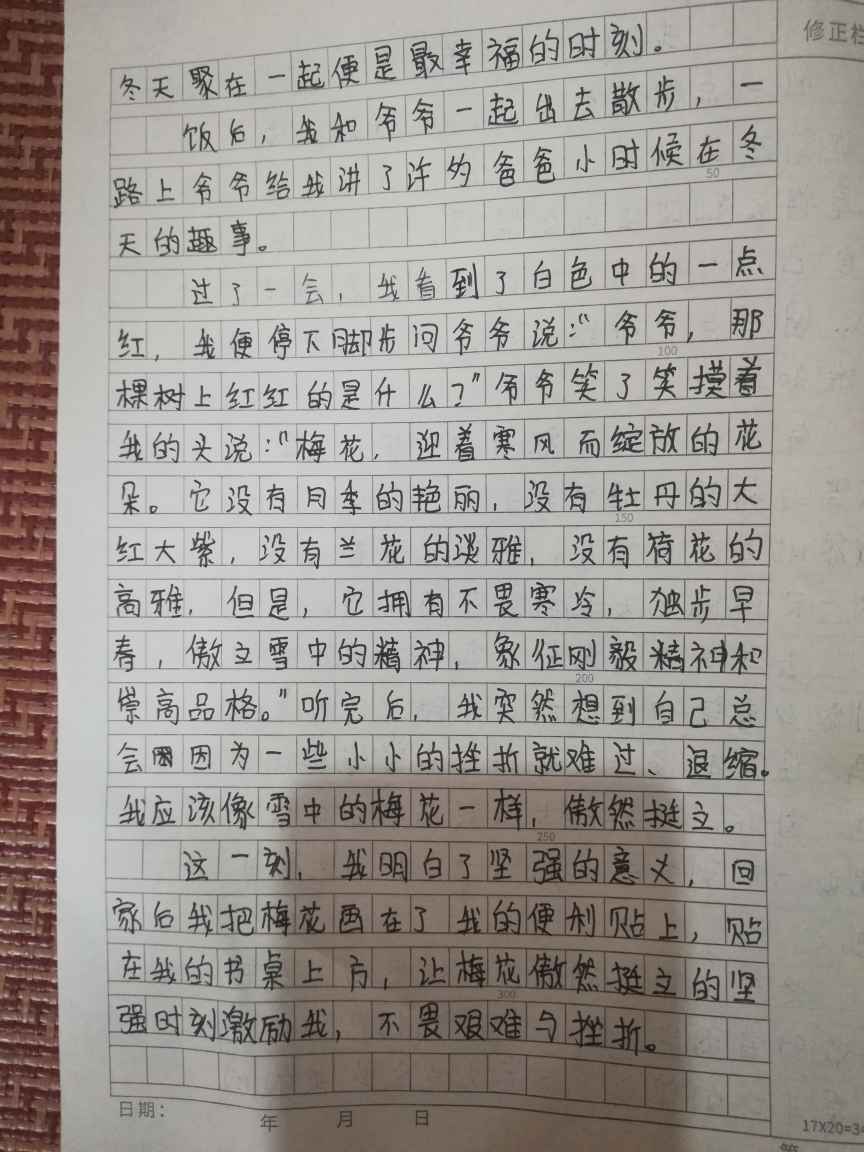 修正栏
冬天聚在一起便是最幸福的时刻。
饭后，我和爷爷一起出去散步，一
路上爷爷给我讲了许多爸爸小时候在冬
50
天的趣事。
过了一会，我看到了白色中的一点
红，我便停下脚步问爷爷说:“爷爷，那
100
棵树上红红的是什么？”爷爷笑了笑摸着
我的头说:“梅花，迎着寒风而绽放的花
朵。它没有月季的艳丽，没有牡丹的大
150
红大紫，没有兰花的淡雅，没有荷花的
高雅，但是，它拥有不畏寒冷，独步早
春，傲立雪中的精神，象征刚毅精神和
200
崇高品格。”听完后，我突然想到自己总
会因为一些小小的挫折就难过、退缩。
我应该像雪中的梅花一样，傲然挺立。
250
这一刻，我明白了坚强的意义，回
家后我把梅花画在了我的便利贴上，贴
在我的书桌上方，让梅花傲然挺立的坚
300
强时刻激励我，不畏艰难与挫折。
日期： 年 月 日
17X20=34